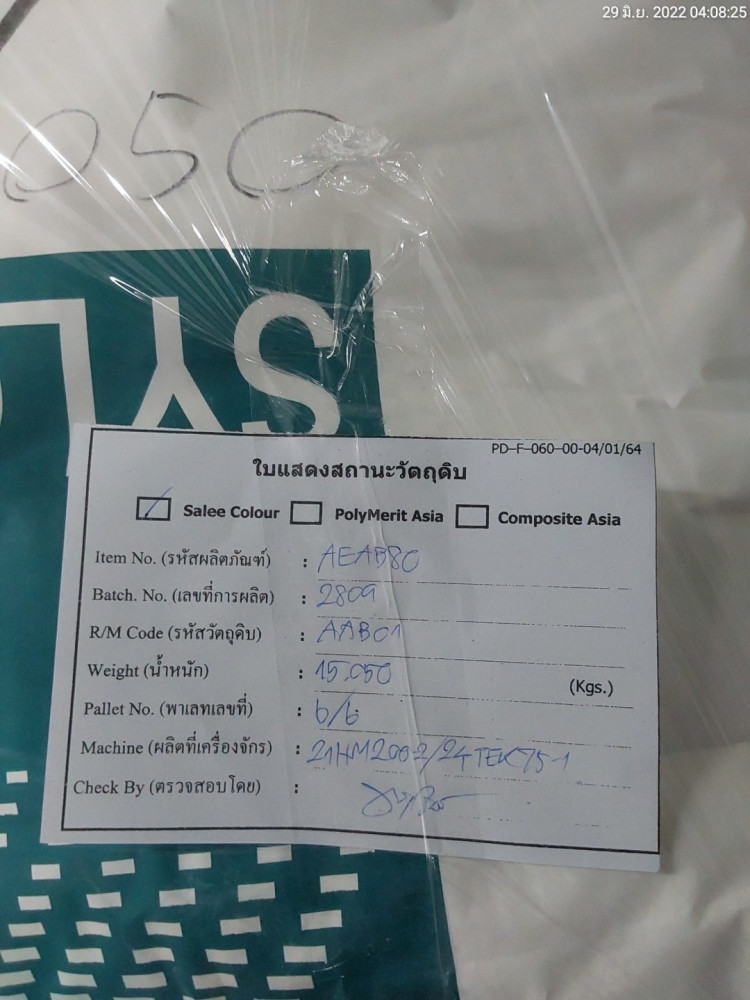 29 มิ.ย. 2022 04:08:25
050
SYL
PD-F-060-00-04/01/64
ใบแสดงสถานะวัตถุดิบ
Salee Colour PolyMerit Asia Composite Asia
Item No. (รหัสผลิตภัณฑ์) : AEAB80
Batch. No. (เลขที่การผลิต) : 2809
R/M Code (รหัสวัตถุดิบ) : AAB01
Weight (น้ำหนัก) : 15.050 (Kgs.)
Pallet No. (พาเลทเลขที่) : 6/6
Machine (ผลิตที่เครื่องจักร) : 21HM200-2/24TEK75-1
Check By (ตรวจสอบโดย) :